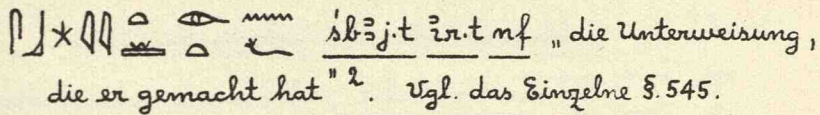 𓋴𓃀𓇼𓇌𓏏𓏛 𓁹𓏏 𓈖𓆑 śbꜣj.t ꞽr.t nf „die Unterweisung,
die er gemacht hat" ². Vgl. das Einzelne §. 545.